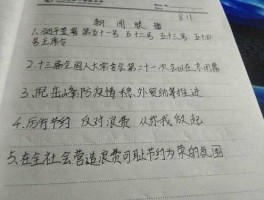 朝闻联播
8.11
1、习近平签署第五十一号 五十二号 五十三号 五十四
号主席令
2、十三届全国人大常委会第二十一次会议在京闭幕
3、防疫情 稳外贸
4、厉行节约 反对浪费 从你我做起
5、在全社会营造浪费可耻节约为荣的氛围